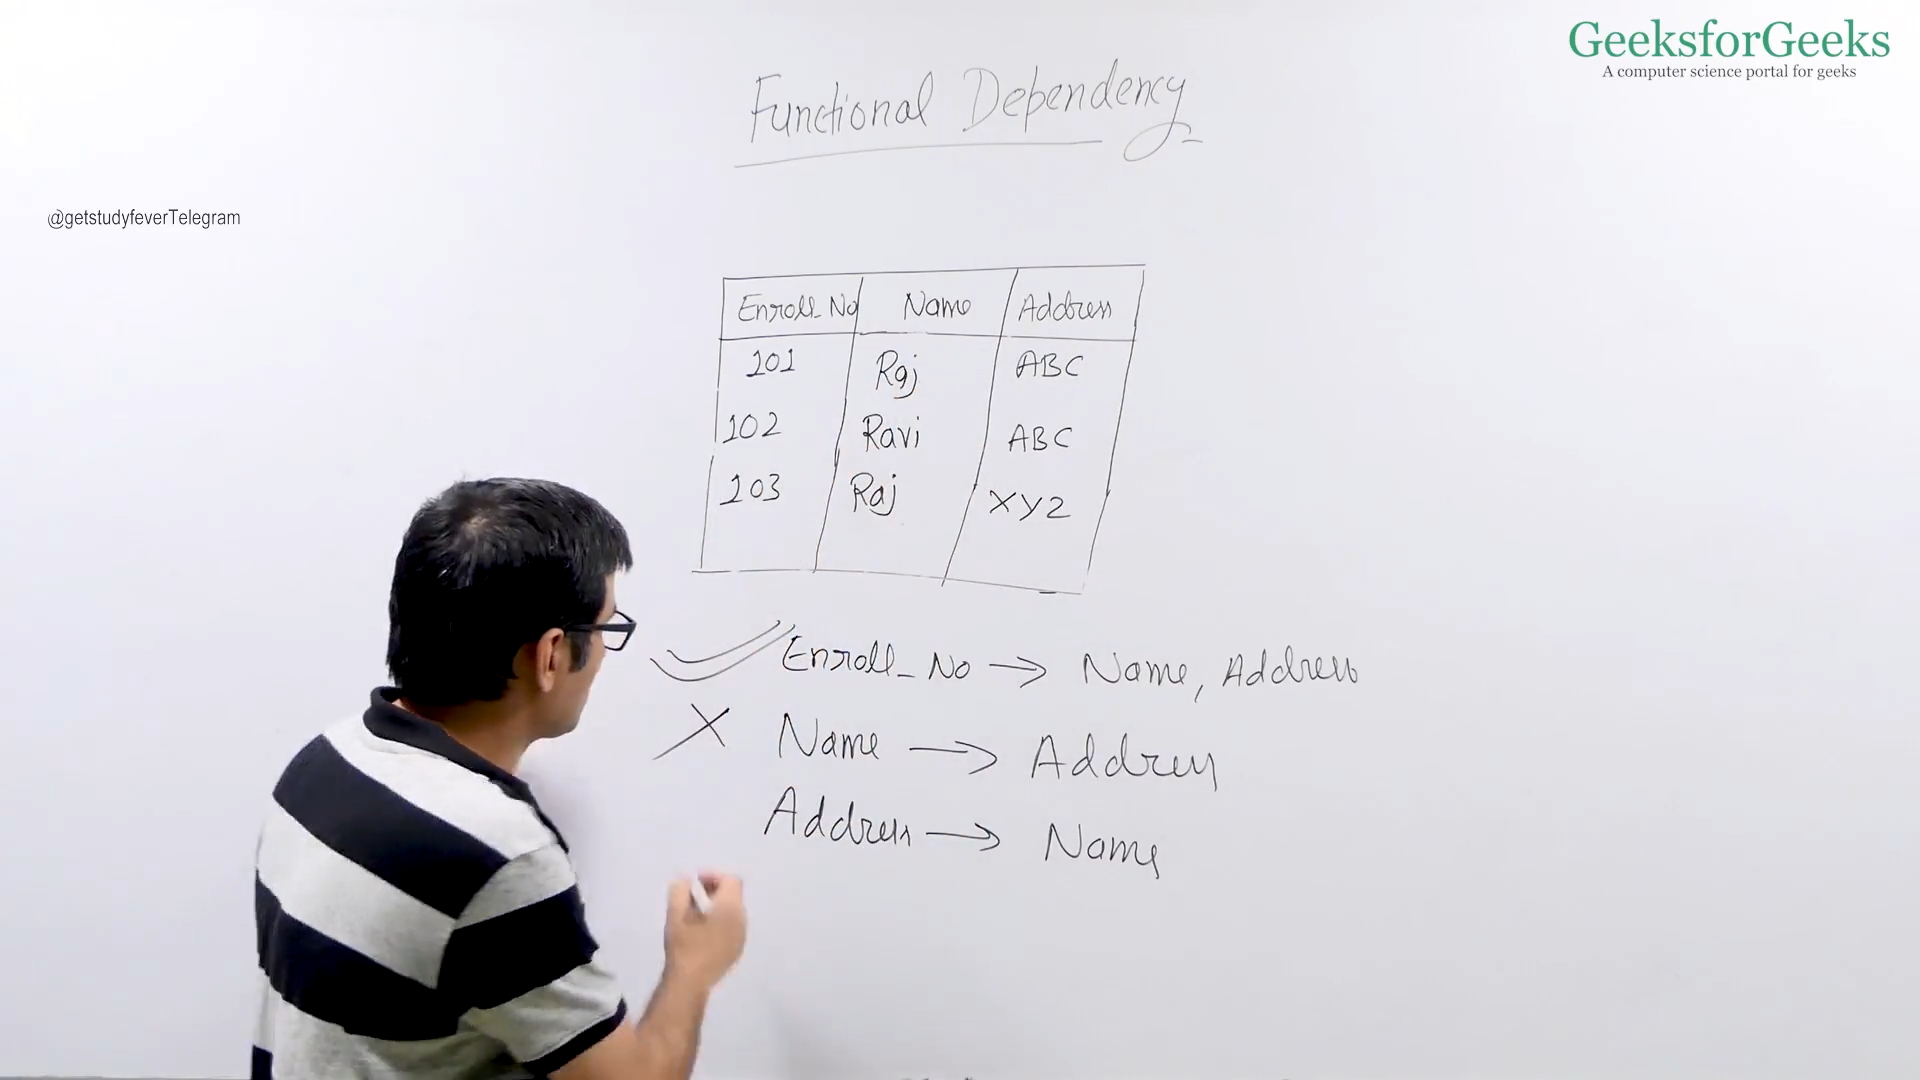 GeeksforGeeks
A computer science portal for geeks
Functional Dependency
@getstudyfeverTelegram
Enroll_No Name Address
101 Raj ABC
102 Ravi ABC
103 Raj XYZ
Enroll_No → Name, Address
X Name → Address
Address → Name